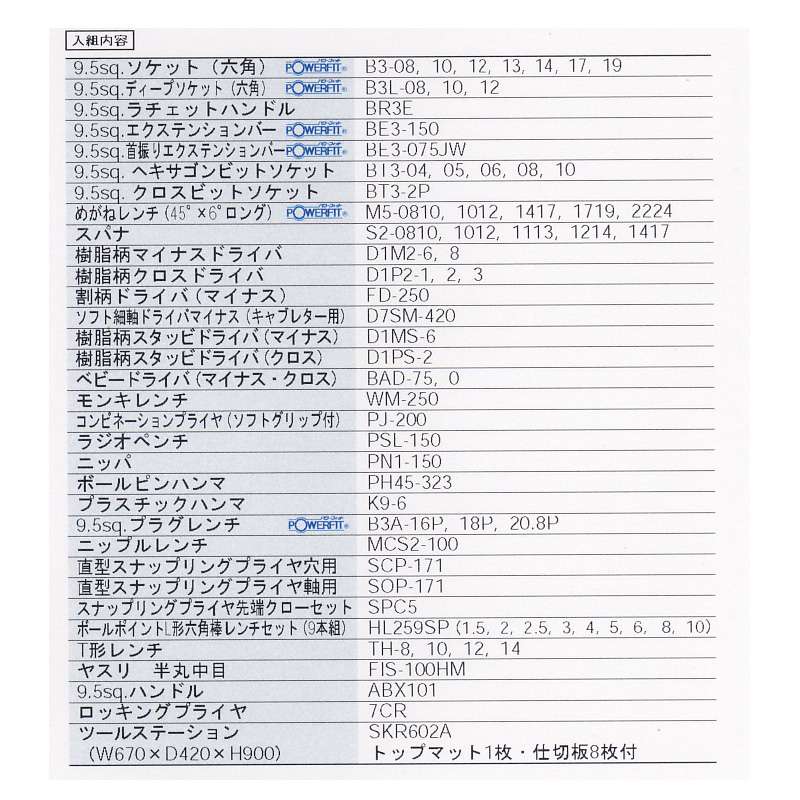 入組内容
9.5sq.ソケット（六角） POWERFIT® B3-08, 10, 12, 13, 14, 17, 19
9.5sq.ディープソケット（六角） POWERFIT® B3L-08, 10, 12
9.5sq.ラチェットハンドル BR3E
9.5sq.エクステンションバー POWERFIT® BE3-150
9.5sq.首振りエクステンションバー POWERFIT® BE3-075JW
9.5sq. ヘキサゴンビットソケット BT3-04, 05, 06, 08, 10
9.5sq. クロスビットソケット BT3-2P
めがねレンチ（45°×6°ロング） POWERFIT® M5-0810, 1012, 1417, 1719, 2224
スパナ S2-0810, 1012, 1113, 1214, 1417
樹脂柄マイナスドライバ D1M2-6, 8
樹脂柄クロスドライバ D1P2-1, 2, 3
割柄ドライバ（マイナス） FD-250
ソフト細軸ドライバマイナス（キャブレター用） D7SM-420
樹脂柄スタッビドライバ（マイナス） D1MS-6
樹脂柄スタッビドライバ（クロス） D1PS-2
ベビードライバ（マイナス・クロス） BAD-75, 0
モンキレンチ WM-250
コンビネーションプライヤ（ソフトグリップ付） PJ-200
ラジオペンチ PSL-150
ニッパ PN1-150
ボールピンハンマ PH45-323
プラスチックハンマ K9-6
9.5sq.プラグレンチ POWERFIT® B3A-16P, 18P, 20.8P
ニップルレンチ MCS2-100
直型スナップリングプライヤ穴用 SCP-171
直型スナップリングプライヤ軸用 SOP-171
スナップリングプライヤ先端クローセット SPC5
ボールポイントL形六角棒レンチセット（9本組） HL259SP（1.5, 2, 2.5, 3, 4, 5, 6, 8, 10）
T形レンチ TH-8, 10, 12, 14
ヤスリ 半丸中目 FIS-100HM
9.5sq.ハンドル ABX101
ロッキングプライヤ 7CR
ツールステーション SKR602A
（W670×D420×H900） トップマット1枚・仕切板8枚付